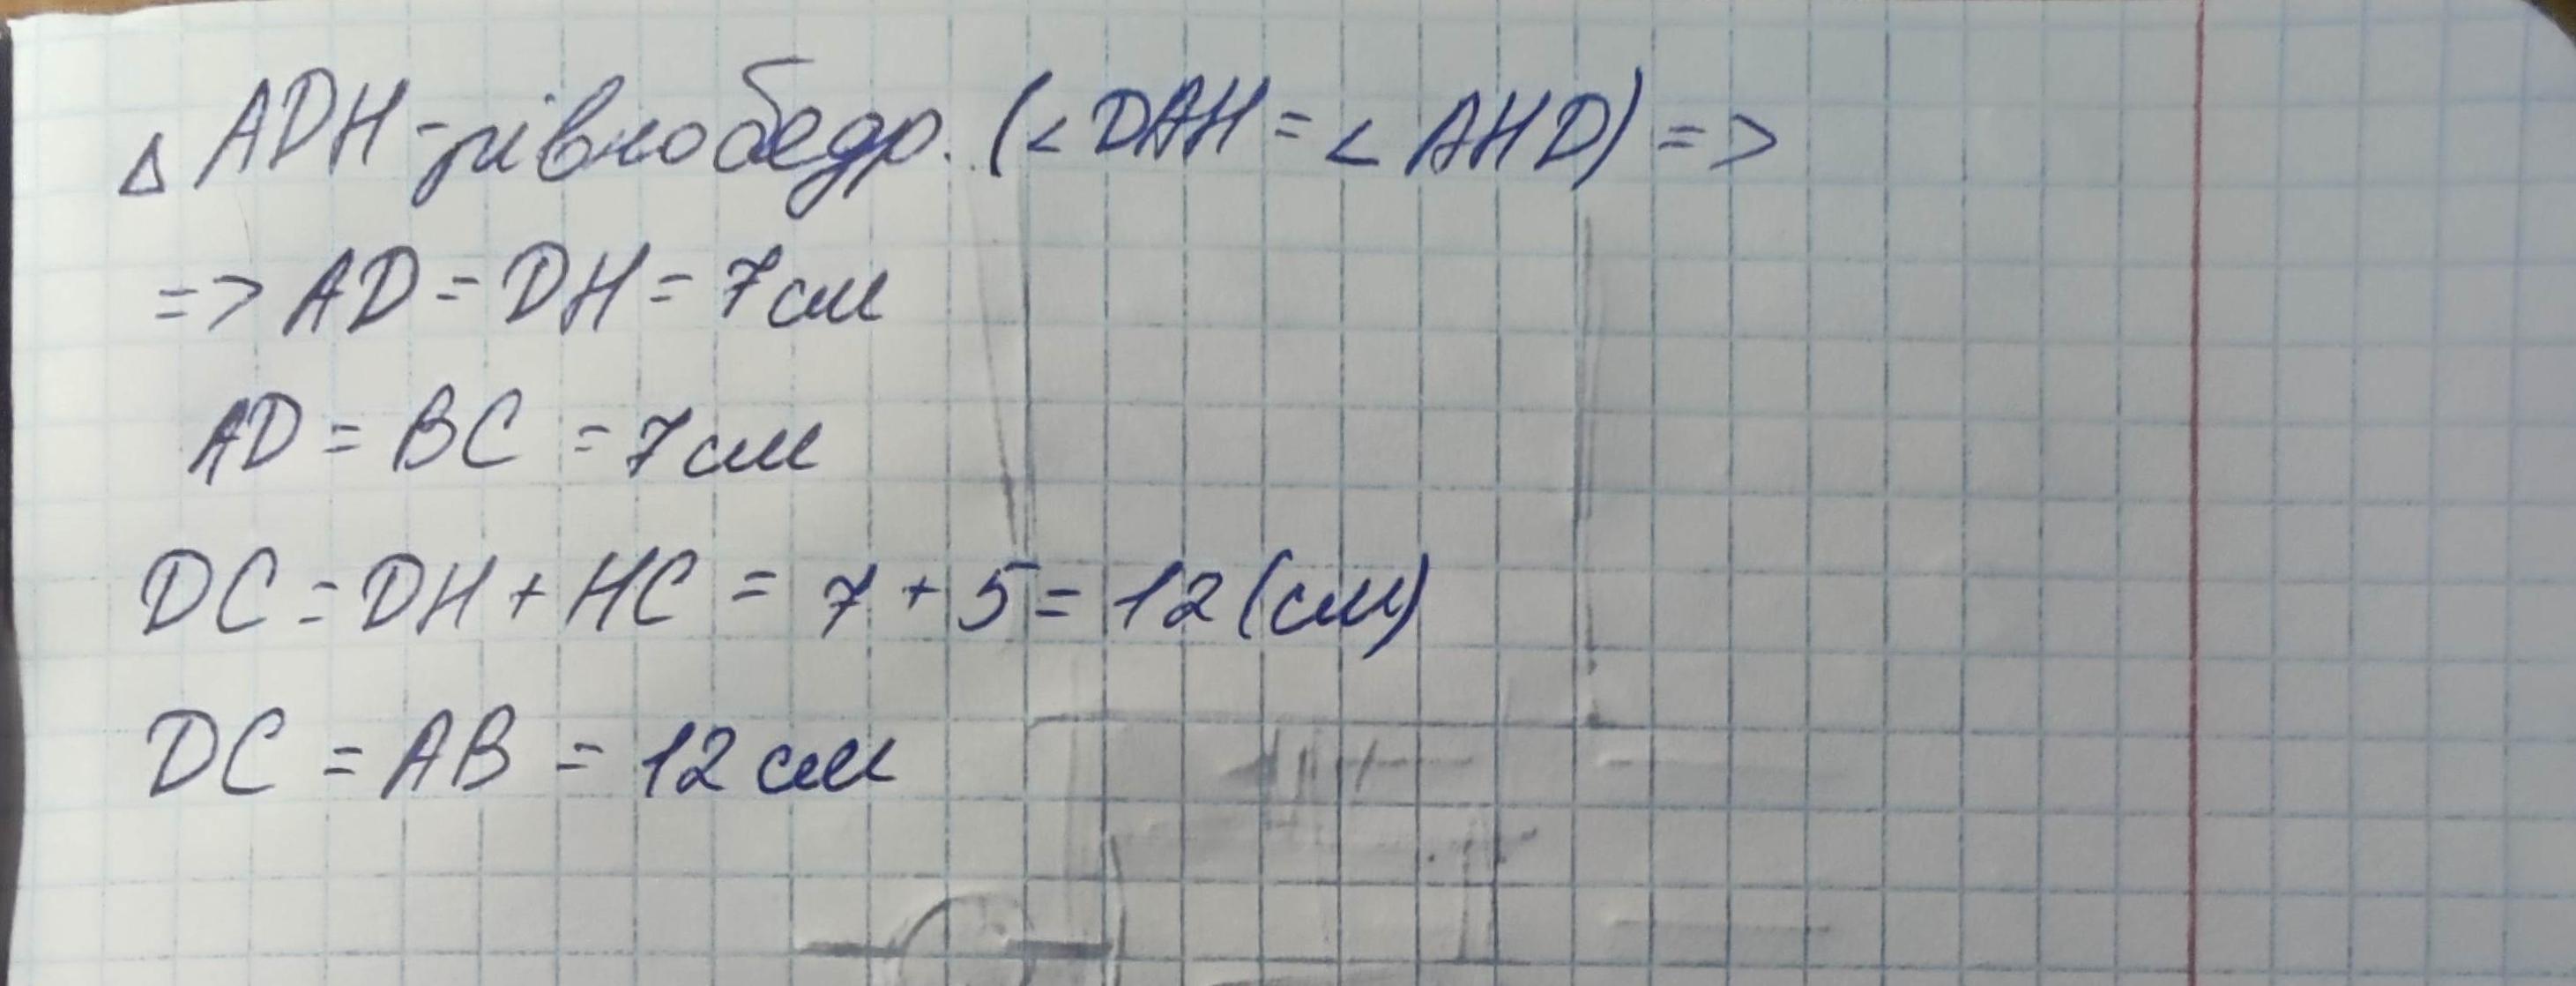 △ ADH - рівнобедр. (∠DAH = ∠AHD) =>
=> AD = DH = 7 см
AD = BC = 7 см
DC = DH + HC = 7 + 5 = 12 (см)
DC = AB = 12 см